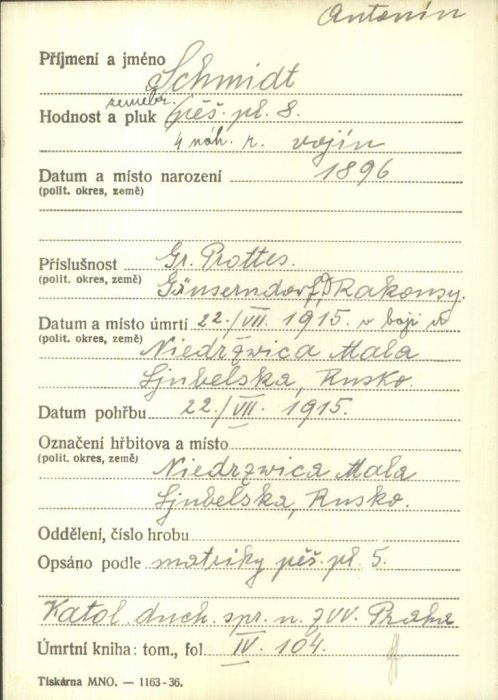 Antonín
Příjmení a jméno Schmidt
zeměbr.
Hodnost a pluk pěš. pl. 8.
4 náh. r. vojín
Datum a místo narození 1896
(polit. okres, země)
Příslušnost Gr. Prottes.
(polit. okres, země) Gänserndorf, D. Rakousy.
Datum a místo úmrtí 22./VII. 1915. v boji
(polit. okres, země) Niedrzwica Mala
Ljubelska, Rusko.
Datum pohřbu 22./VII. 1915.
Označení hřbitova a místo
(polit. okres, země) Niedrzwica Mala
Ljubelska, Rusko.
Oddělení, číslo hrobu
Opsáno podle matriky pěš. pl. 5.
Katol. duch. spr. n. ZVV. Praha
Úmrtní kniha: tom., fol. IV. 104.
Tiskárna MNO. — 1163-36.